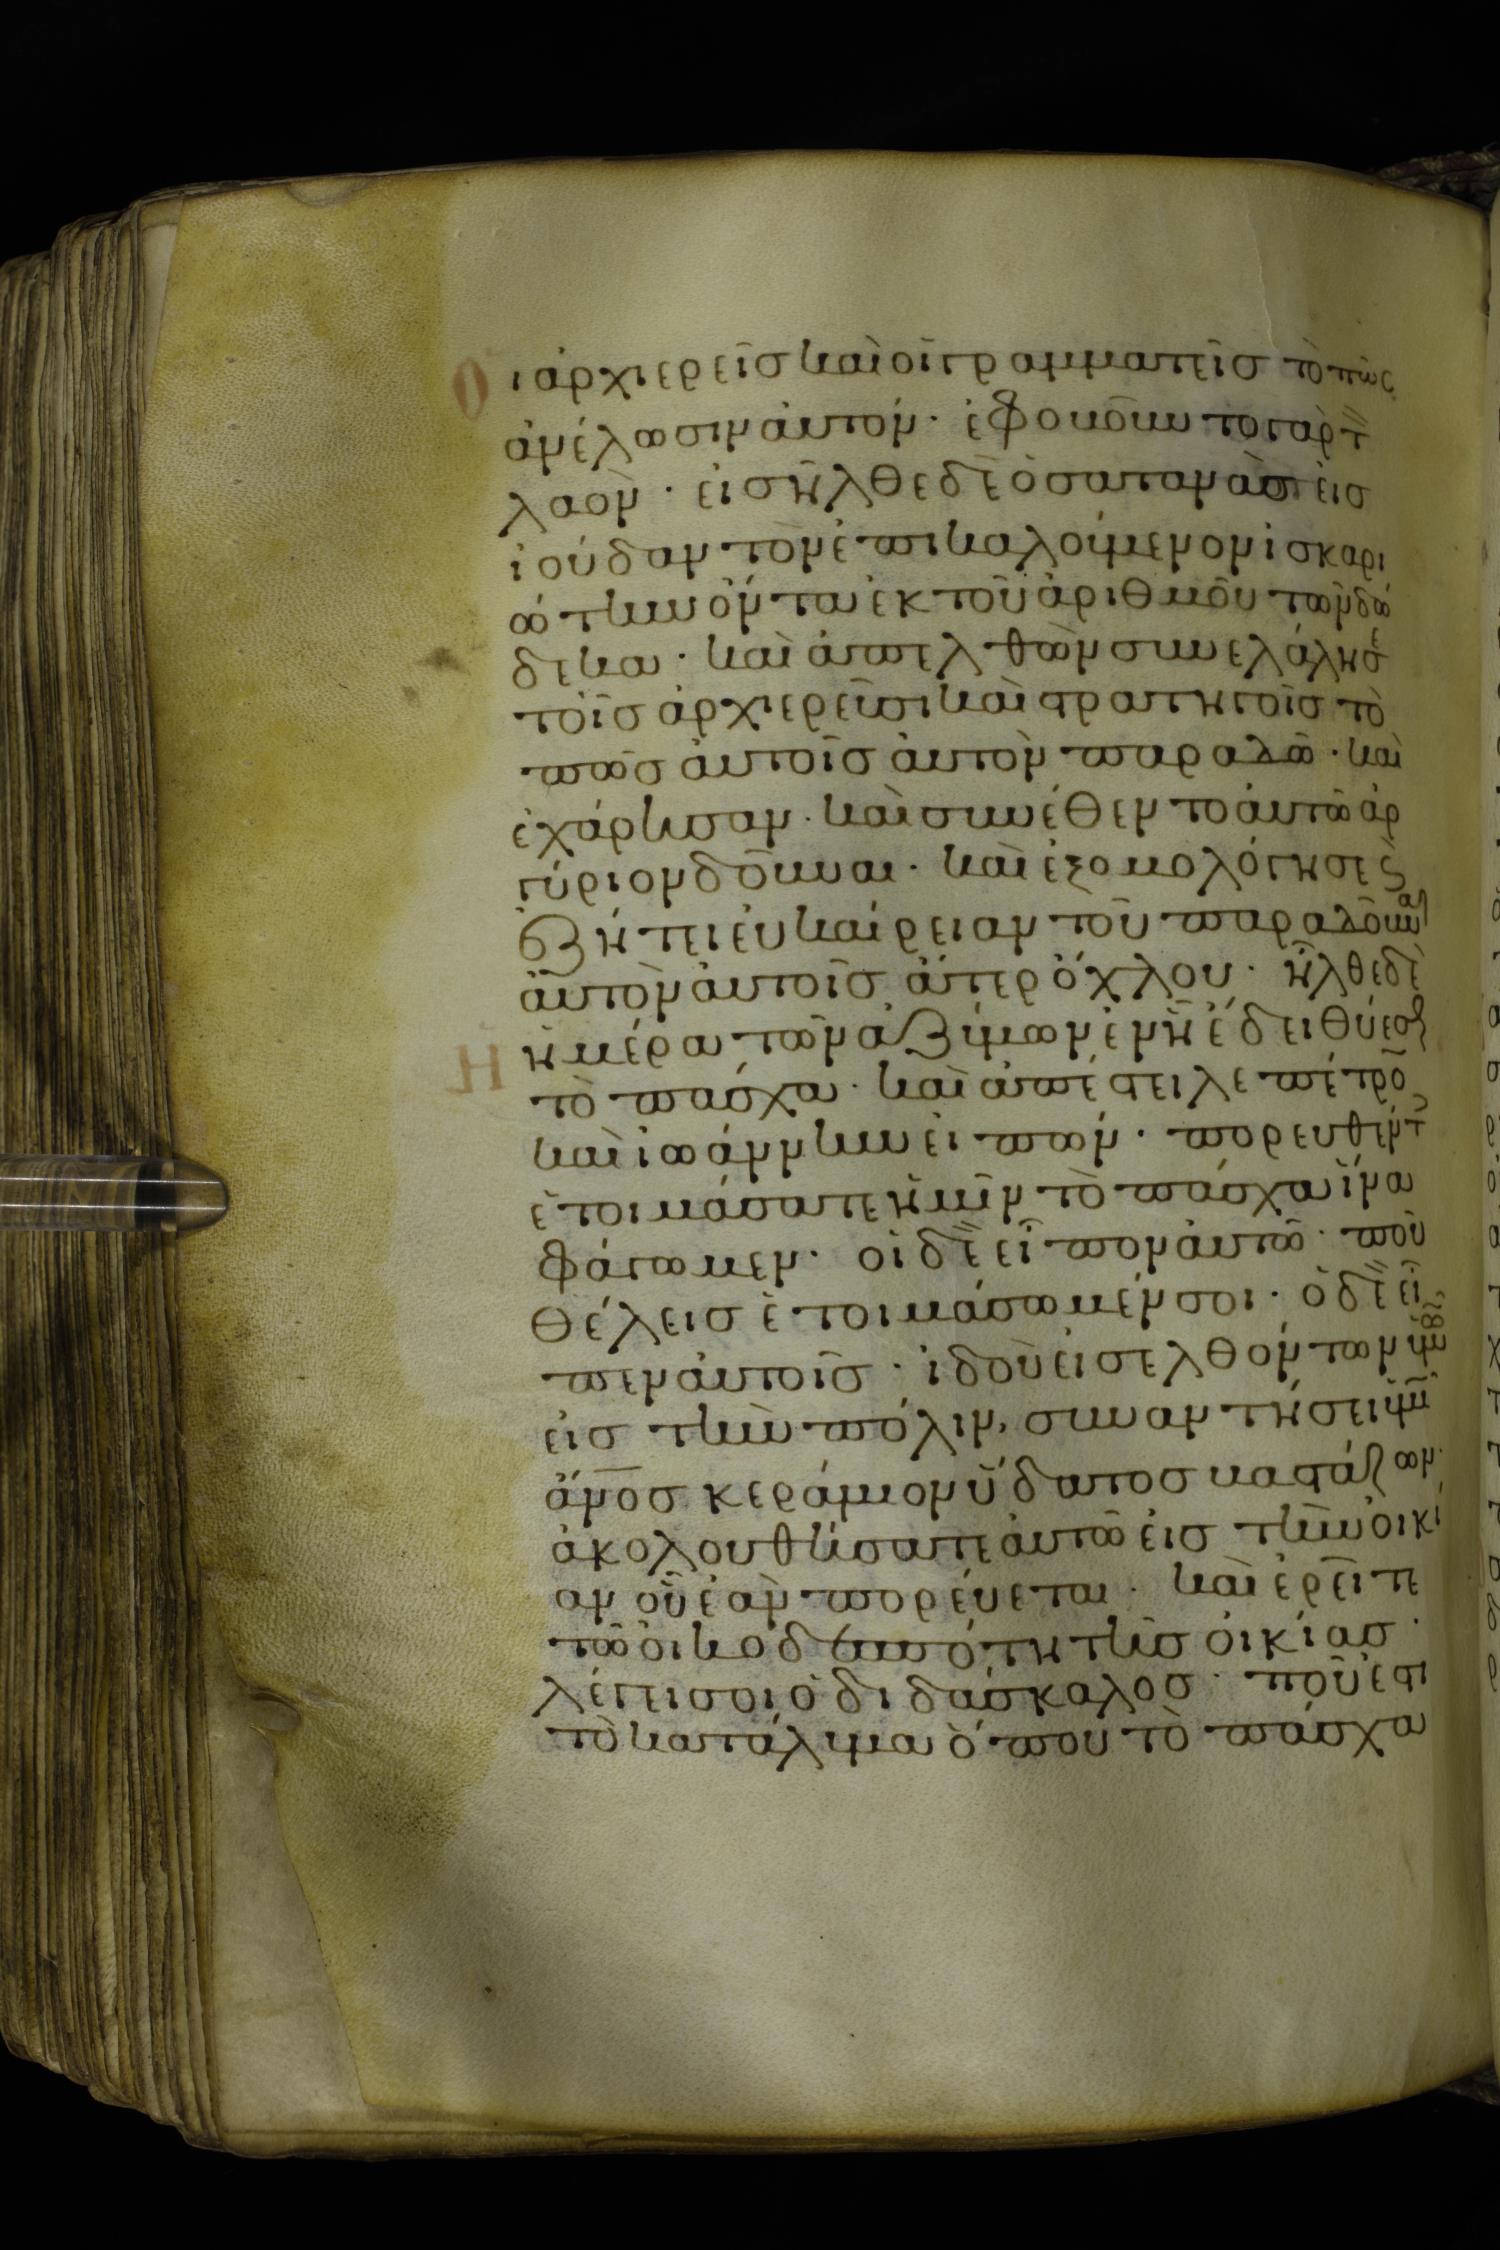 Οι ἀρχιερεῖσ καὶ οἱ γραμματεῖσ τὸ πῶς
ἀνέλωσιν ἀυτόν · ἐφοβοῦντο γὰρ τ
λαόν · εἰσῆλθε δὲ ὁ σατανᾶσ εἰσ
ἰούδαν τὸν ἐπικαλούμενον ἰσκαρι
ώτην ὄντα ἐκ τοῦ ἀριθμοῦ τῶν δώ
δεκα · καὶ ἀπελθὼν συνελάλησε
τοῖσ ἀρχιερεῦσι καὶ στρατηγοῖσ τὸ
πῶσ ἀυτοῖσ ἀυτὸν παραδῶ · καὶ
ἐχάρησαν · καὶ συνέθεντο ἀυτῶ ἀρ
γύριον δοῦναι · καὶ ἐξομολόγησε ϛ
ἐζήτει ἐυκαίρειαν τοῦ παραδοῦναι
ἀυτὸν ἀυτοῖσ ἄτερ ὄχλου · ἦλθε δὲ
Η ἡμέρα τῶν ἀζύμων ἐν ἧ ἔδει θύεσθ
τὸ πάσχα · καὶ ἀπέστειλε πέτρον
καὶ ἰωάννην ἐιπών · πορευθέντ
ἑτοιμάσατε ἡμῖν τὸ πάσχα ἵνα
φάγωμεν · οἱ δὲ εἶπον ἀυτῶ · ποῦ
θέλεισ ἑτοιμάσωμέν σοι · ὁ δὲ εἶ
πεν ἀυτοῖσ · ἰδοὺ εἰσελθόντων ὑμῶν
εἰσ τὴν πόλιν, συναντήσει ὑμῖν
ἄνοσ κεράμιον ὕδατοσ βαστάζων ·
ἀκολουθήσατε ἀυτῶ εἰσ τὴν οἰκί
αν οὗ ἐὰν πορέυεται · καὶ ἐρεῖτε
τῶ οἰκοδεσπότη τῆσ οἰκίασ ·
λέγει σοι ὁ διδάσκαλοσ · ποῦ ἐστι
τὸ κατάλυμα ὅπου τὸ πάσχα